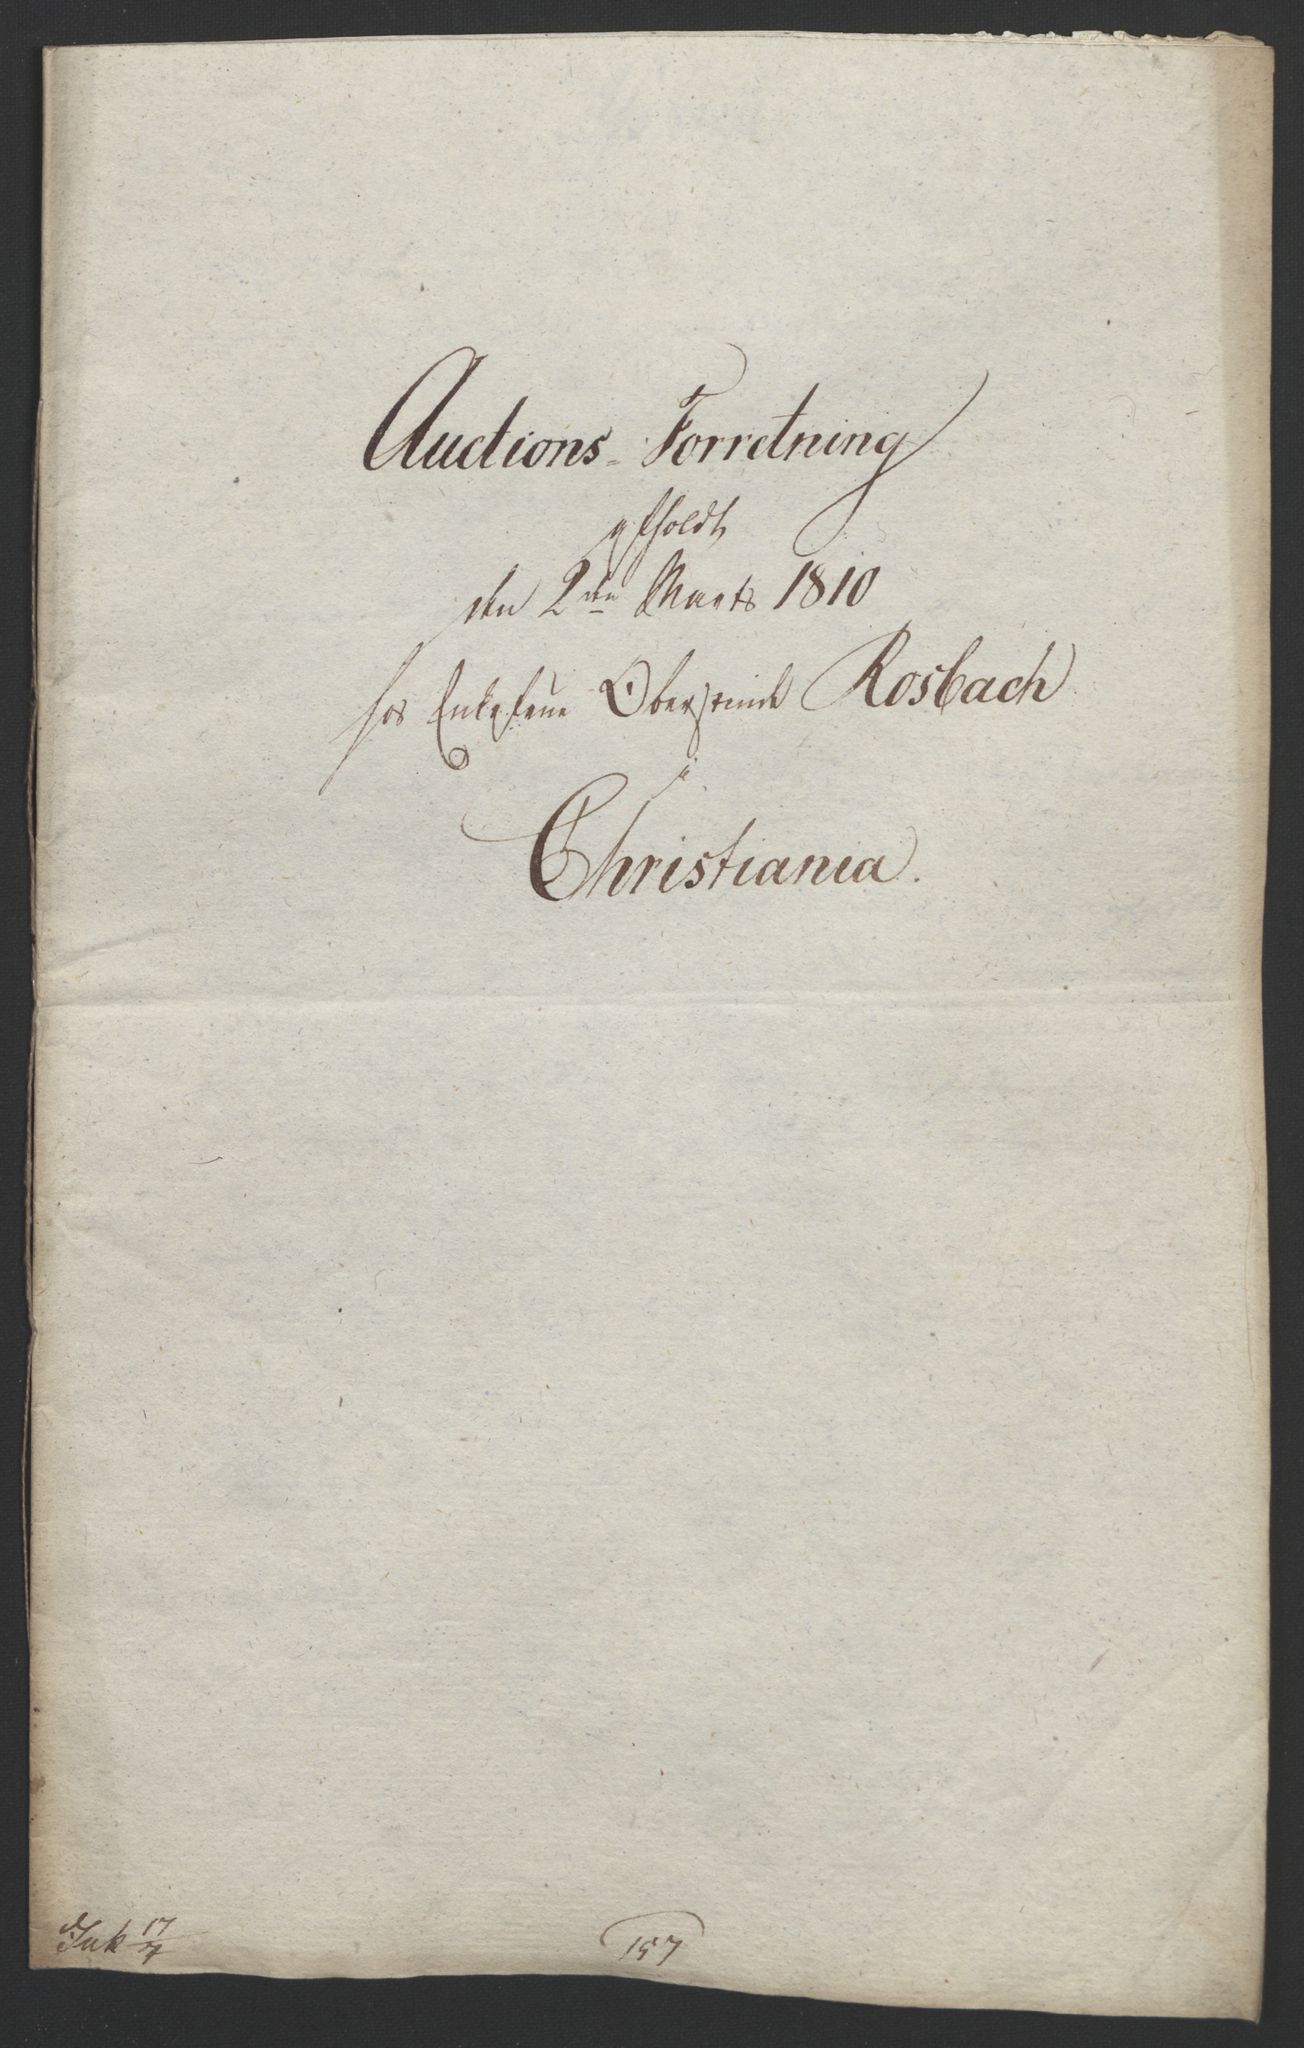 Auctions-Forretning
afholdt
den 2den Marts 1810
hos Enkefrue Oberstinde Rosbach
i
Christiania.
Ink 17/7
157